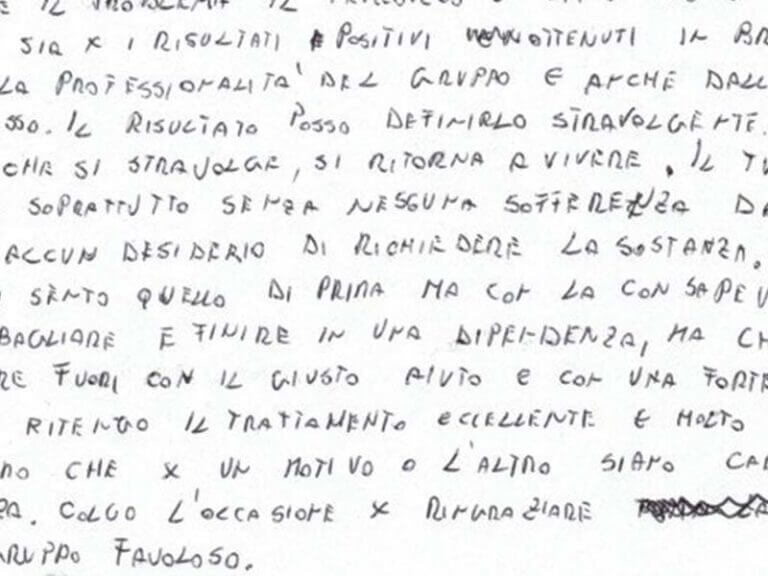 E IL PROBLEMA IL
SIA X I RISULTATI POSITIVI OTTENUTI IN BR
LA PROFESSIONALITA' DEL GRUPPO E ANCHE DALL
SSO. IL RISULTATO POSSO DEFINIRLO STRAVOLGENTE.
CHE SI STRAVOLGE, SI RITORNA A VIVERE. IL TU
SOPRATTUTTO SENZA NESSUNA SOFFERENZA DA
ACCUN DESIDERIO DI RICHIEDERE LA SOSTANZA.
I SENTO QUELLO DI PRIMA MA CON LA CONSAPEV
BAGLIARE E FINIRE IN UNA DIPENDENZA, MA CH
RE FUORI CON IL GIUSTO AIUTO E CON UNA FORTE
RITENGO IL TRATTAMENTO ECCELLENTE E MOLTO
NO CHE X UN MOTIVO O L'ALTRO SIAMO CAD
ZA. COLGO L'OCCASIONE X RINGRAZIARE
GRUPPO FAVOLOSO.